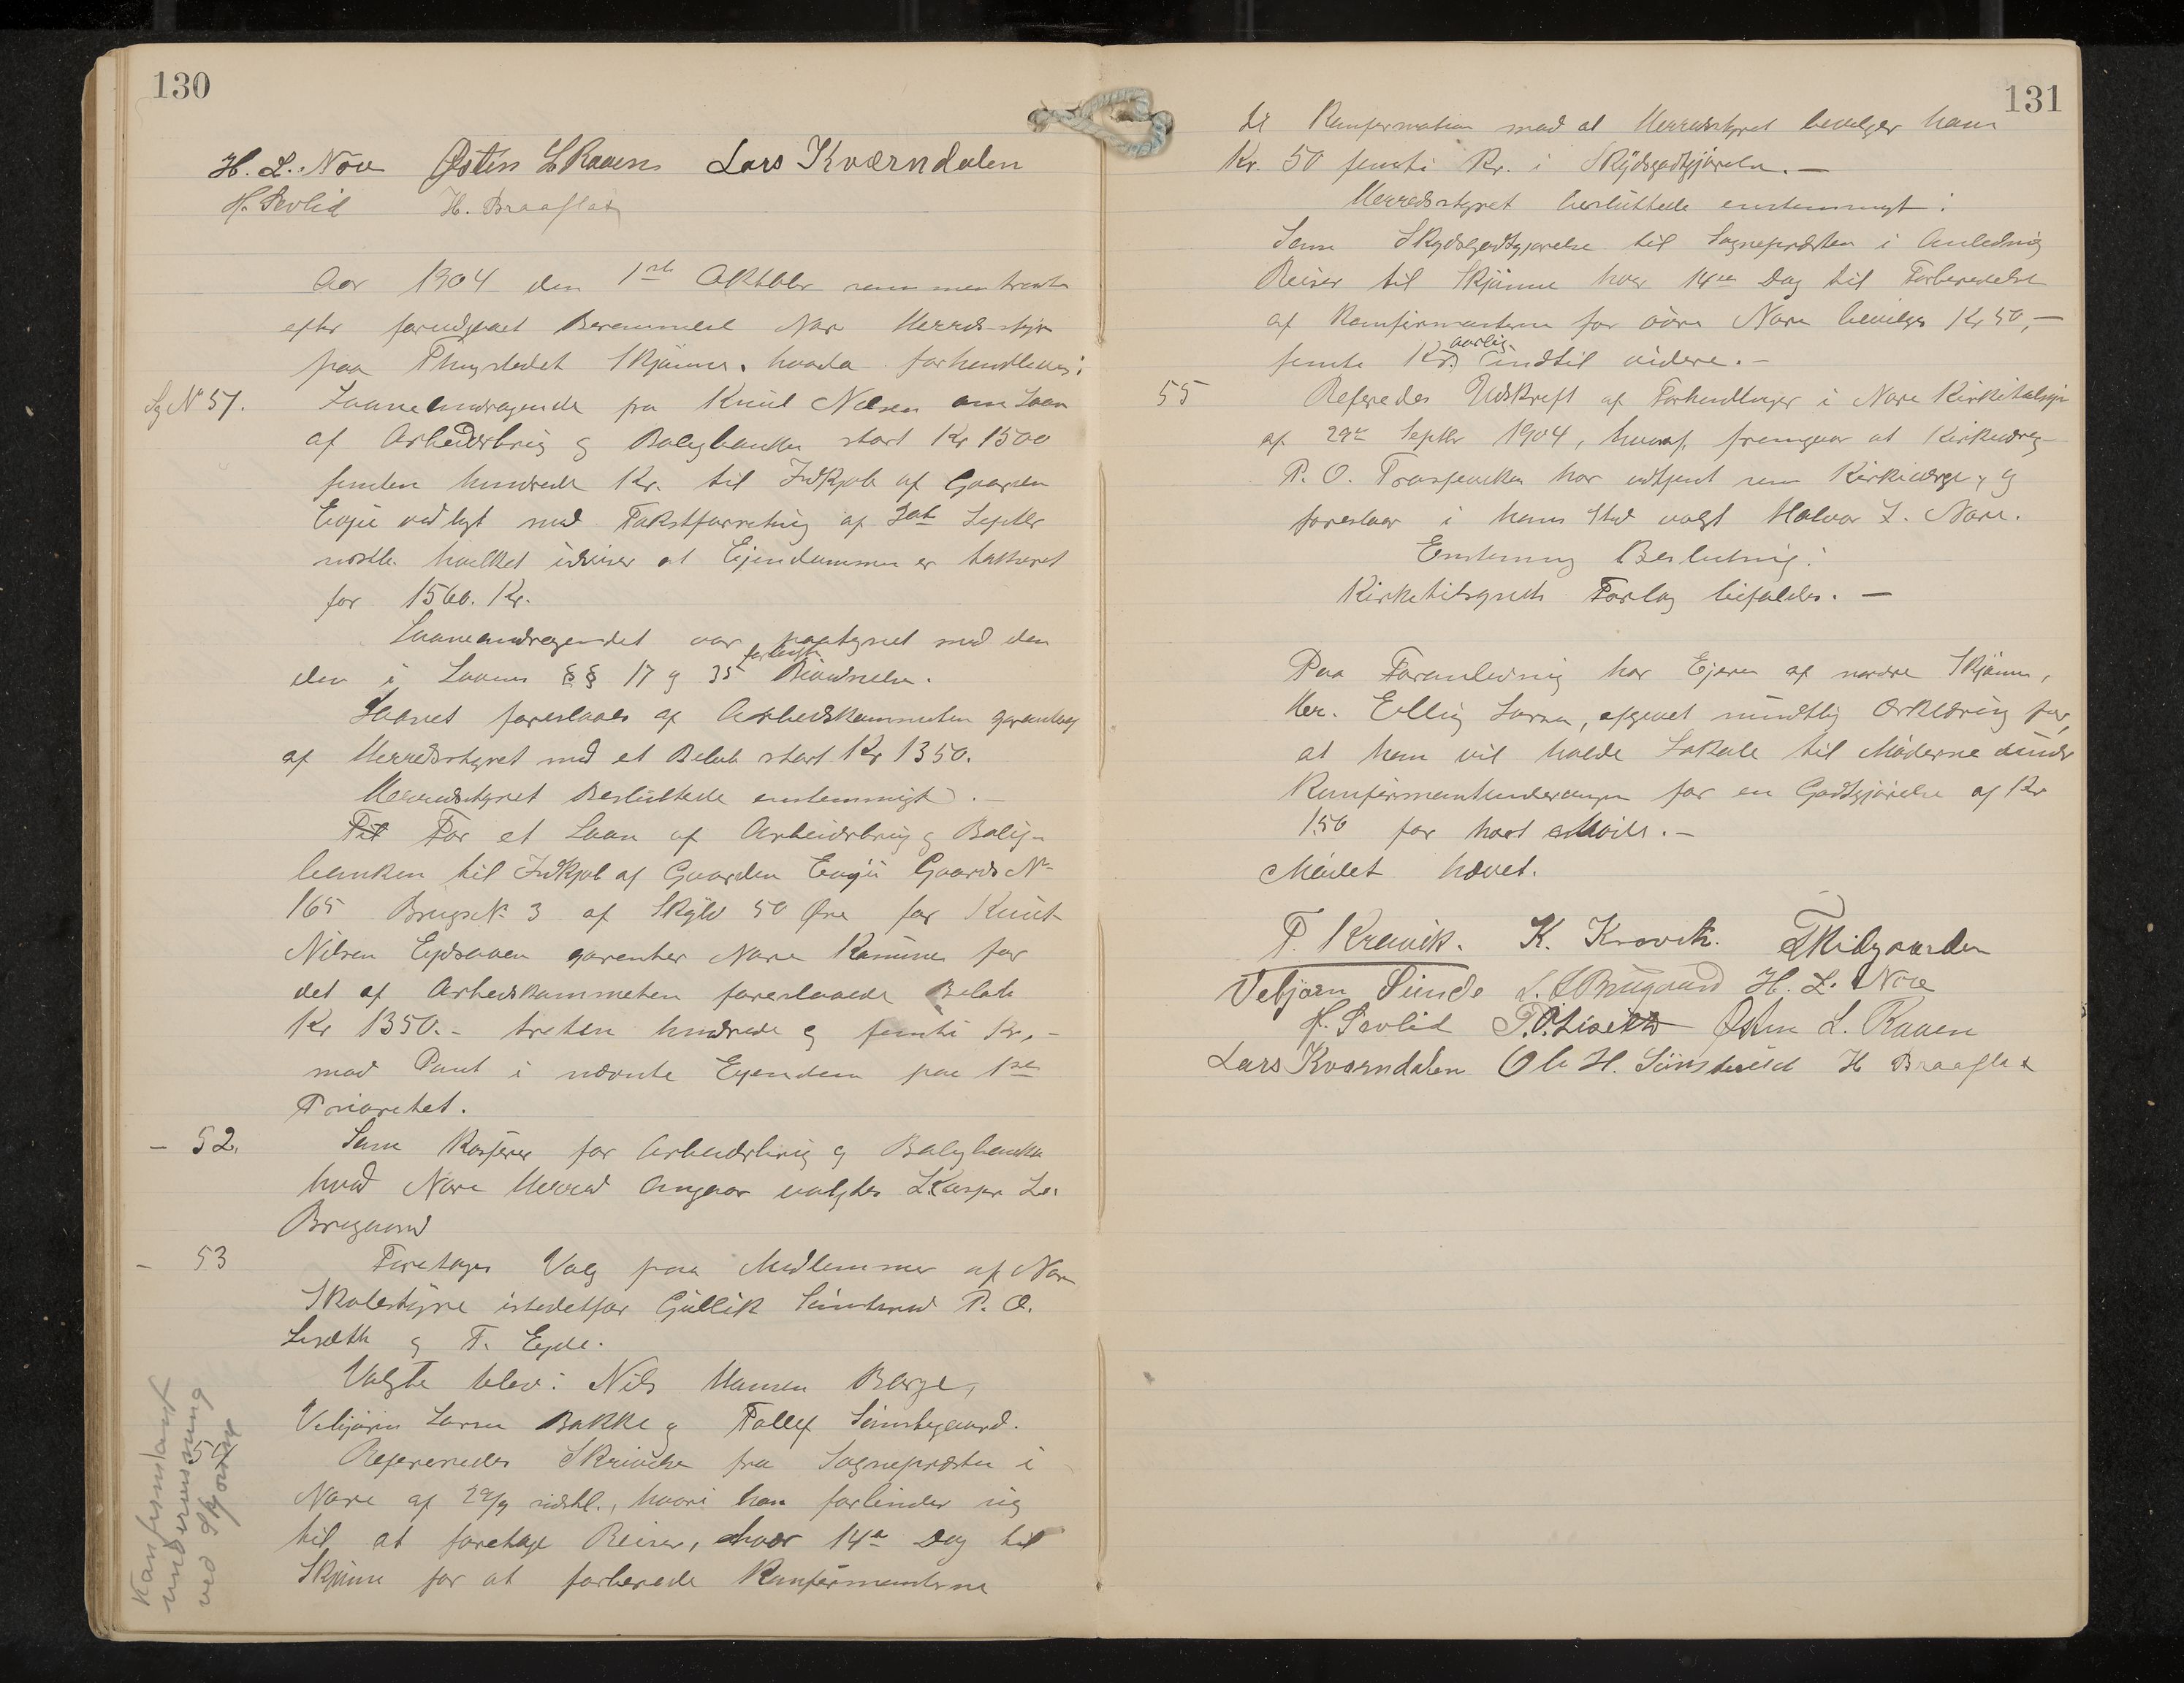 130
H. L. Nore Østen L Raaen Lars Kværndalen
H. Sevlid H. Braaflat
Aar 1904 den 1ste Oktbbr sammentraadte
efter forudgaaet Berammelse Nore Herredsstyre
paa Thingstedet Skjönne, hvorda forhandledes:
Sg No 51. Laaneandragende fra Knut Nilsen om Laan
af Arbeiderbrug g Boligbanken stort Kr 1500
femten hundrede Kr. til Indkjöb af Gaarden
Evju vedlagt med Takstforretning af Septbr
nestl. hvilket udviser at Ejendommen er taksert
for 1560. Kr.
Laaneandragendet var paategnet med den
den i Lovens §§ 17 g 35 forlangte Bevidnelse.
Laanet foreslaaes af Arbeidskommiteen garanteret
af Herredsstyret med et Belöb stort Kr 1350.
Herredsstyret Besluttede enstemmigt.-
Til For et Laan af Arbeiderbrug g Bolig-
banken til Indkjöb af Gaarden Evju Gaards No
165 Brugs No 3 af Skyld 50 Øre for Knut
Nilsen Eydsaaen garenterer Nore Kommune for
det af Arbeidskommiteen foreslaaede Belöb
Kr 1350.- tretten hundrede g femti Kr,-
mod Pant i nævnte Eyendom paa 1ste
Prioritet.
- 52. Som Kasserer for Arbeiderbrug g Boligbanken
hvad Nore Herred Angaar valgtes Kasper L.
Brugaard
- 53 Foretoges Valg paa Medlemmer af Nore
Skolestyre istedetfor Gullik Simterud P. O.
Liseth g T. Eyde.
Valgte blev: Nils Hansen Berge,
Vebjörn Larsen Bakke g Tollef Simtegaard.
54 Refereredes Skrivelse fra Sognepræsten i
Nore af 29/9 sidstl., hvori han forbinder sig
til at foretage Reiser, hver 14de Dag til
Skjönne for at forberede Konfirmanterne
Konfirmdant
undervisning
ved Skjönne
131
til Konfirmation mod at Herredsstyret bevilger ham
Kr. 50 femti Kr. i Skydsgodtgjörelse.-
Herredsstyret besluttede enstemmigt:
Som Skydsgodtgjörelse til Sognepræsten i Anledning
Reiser til Skjönne hver 14de Dag til Forberedelse
af Konfirmanterne for övre Nore bevilges Kr 50,-
femti Kr. aarlig indtil videre.-
55 Referedes Udskrift af Forhandlinger i Nore Kirketilsyn
af 29de Septbr 1904, hvoraf fremgaar at Kirkeverge
P. O. har udtjent som Kirkeverge, g
foreslaar i hans Sted valgt Halvor L. Nore.
Enstemmig Beslutning:
Kirketilsynets Forlag bifaldes.-
Paa Foranledning har Ejeren af nordre Skjönne,
Hr. Elling Larsen, afgivet mündtlig Erklæring for,
at han vil holde Lokale til Möderne under
Konfirmantunderv. for en Godtgjörelse af Kr
1.50 for hvert Möde.-
Mödet hævet.
T. Kravik. K. Kravik. T Skidgaarden
Vebjørn Sunde L. L Brugaard H. L. Nore
H. Sevlid P. O. Liseth Østen L. Raaen
Lars Kværndalen Ole H. Simterud H Braaflat